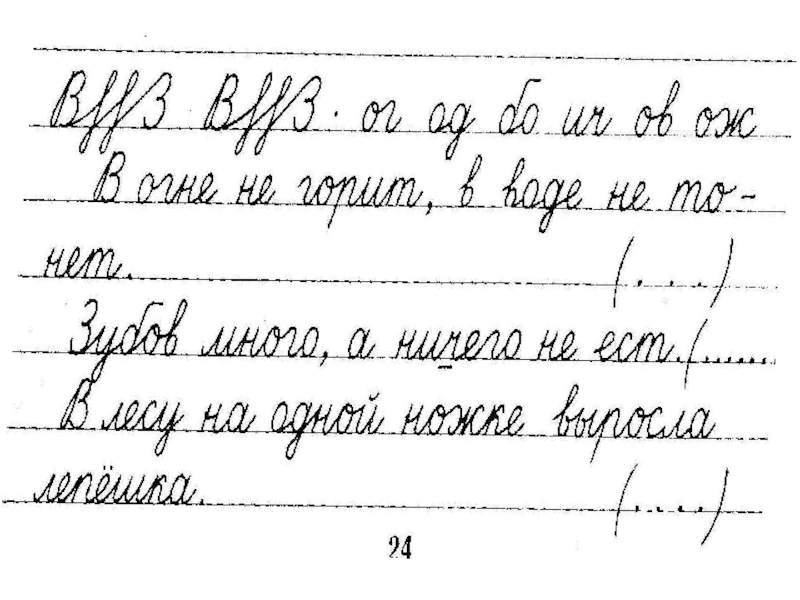 ВДДЗ ВДДЗ· ог од бо ич ов ож
В огне не горит, в воде не то-
нет. (. . . .)
Зубов много, а ничего не ест. (......
В лесу на одной ножке выросла
лепёшка. (.....)
24